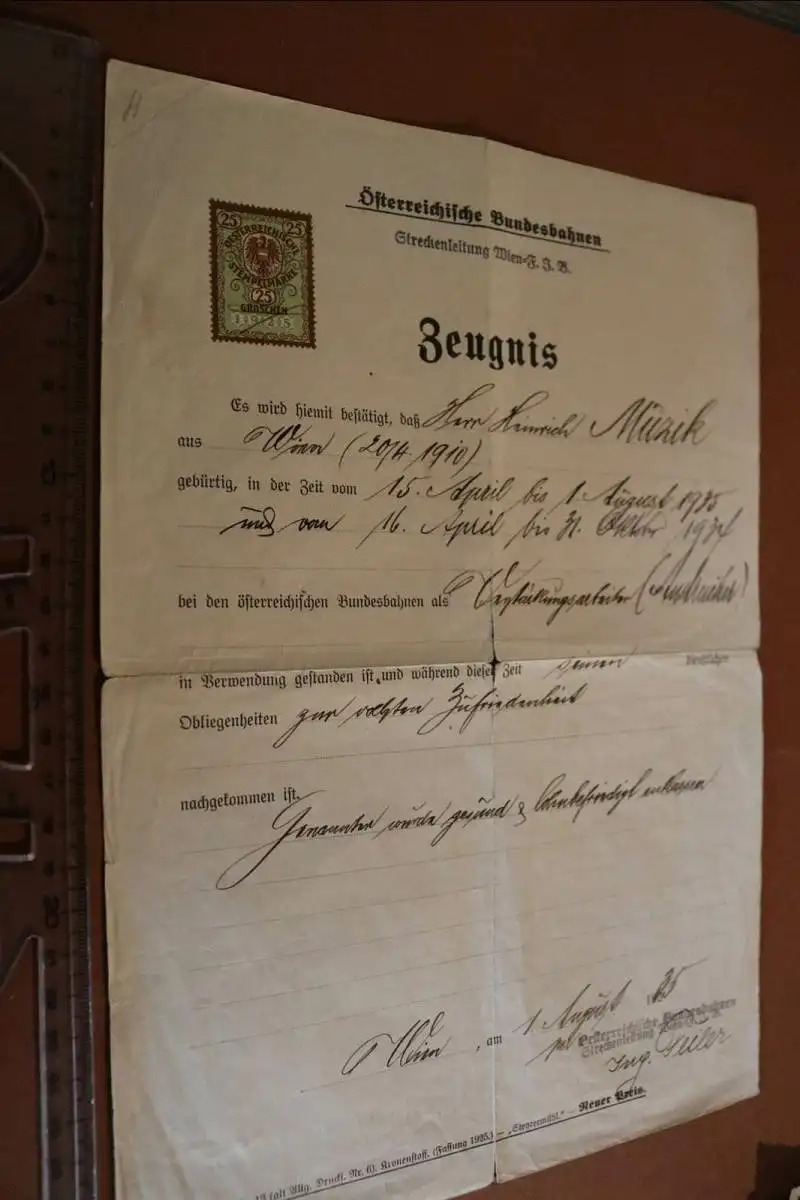 Österreichische Bundesbahnen
Streckenleitung Wien-F. J. B.
25 25
ÖSTERREICHISCHE
STEMPELMARKE
25
GROSCHEN
1925
Zeugnis
Es wird hiemit bestätigt, daß Herr Heinrich Muzik
aus Wien (20/4. 1910)
gebürtig, in der Zeit vom 15. April bis 1. August 1935
und vom 16. April bis 31. Oktober 1934
bei den österreichischen Bundesbahnen als Verstärkungsarbeiter (Anstreicher)
in Verwendung gestanden ist und während dieser Zeit seinen dienstlichen
Obliegenheiten zur vollsten Zufriedenheit
nachgekommen ist.
Genannter wurde gesund & lohnbefriedigt entlassen
Wien, am 1. August 35
Österreichische Bundesbahnen
Streckenleitung Wien-F. J. B.
Ing.
(alt Allg. Drucks. Nr. 6). Kronenstoff. (Fassung 1925.) — „Steyrermühl." — Neuer Preis.